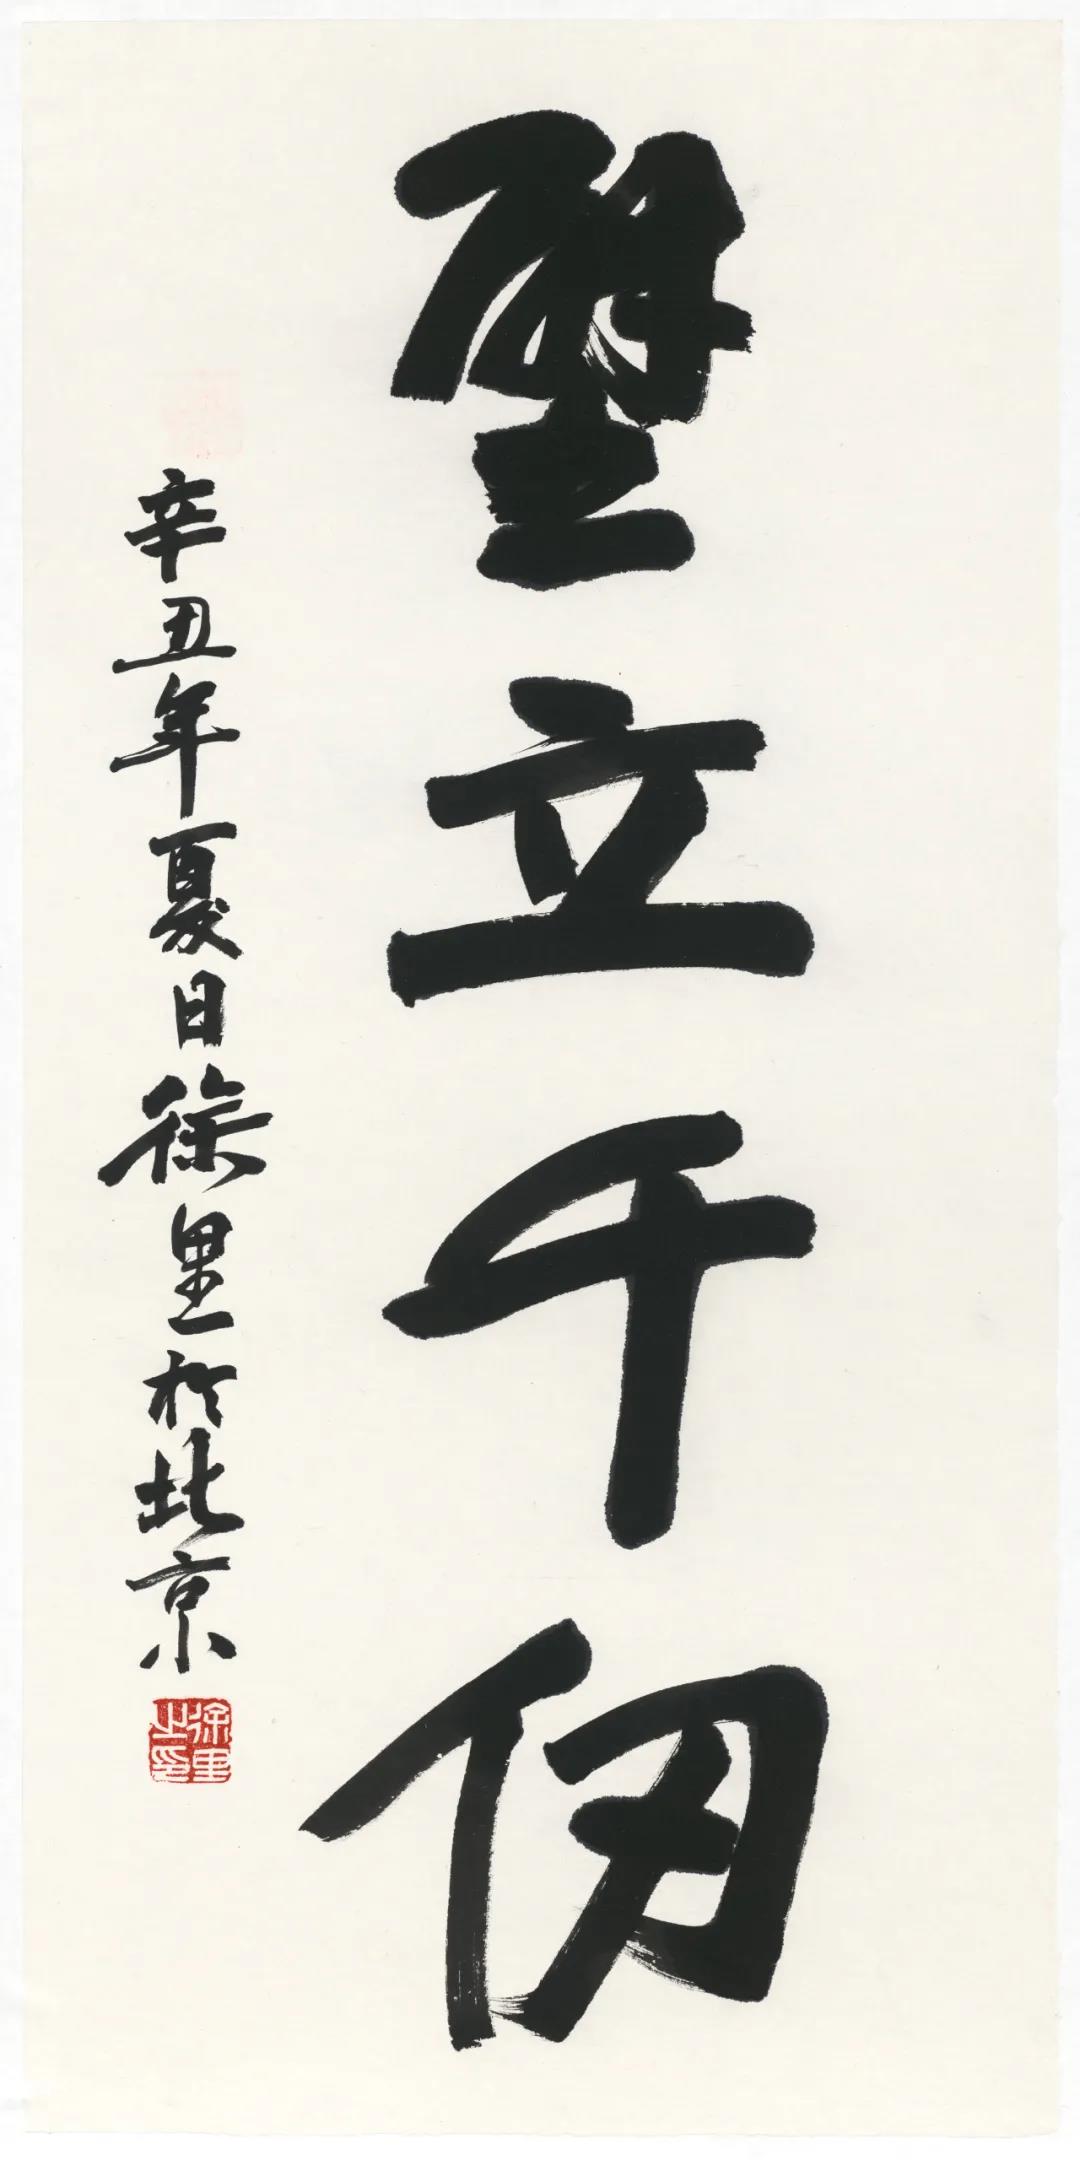 壁立千仞
辛丑年夏日徐里於北京
徐里之印